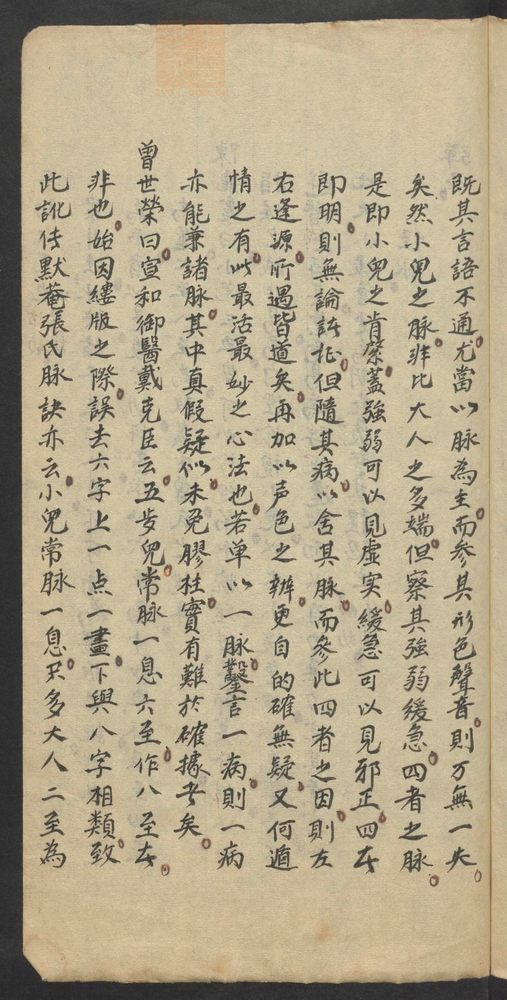 既其言語不通尤當以脉為主而參其形色聲音則万無一失
矣然小兒之脉非比大人之多端但察其強弱緩急四者之脉
是即小兒之肯綮蓋強弱可以見虛实緩急可以見邪正四者
即明則無論諸症但隨其病以合其脉而參此四者之因則左
右逢源所遇皆道矣再加以声色之辨更自的確無疑又何遁
情之有此最活最妙之心法也若単以一脉鑿言一病則一病
亦能兼諸脉其中真假疑似未免膠柱實有難於確據者矣
曾世榮曰宣和御醫戴克臣云五岁兒常脉一息六至作八至者
非也始因縷版之際誤去六字上一点一畫下與八字相類致
此訛传默菴張氏脉訣亦云小兒常脉一息只多大人二至為